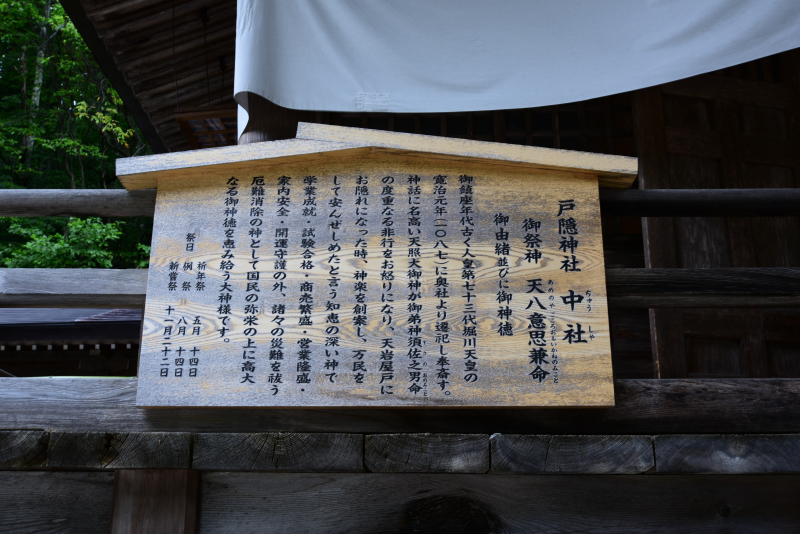 戸隠神社 中社
ちゅう しゃ
御祭神 天八意思兼命
あめのやごころおもいかねのみこと
御由緒並びに御神徳
御鎮座年代古く人皇第七十三代堀川天皇の
寛治元年(一〇八七)に奥社より遷祀し奉斎す。
神話に名高い天照大御神が御弟神須佐之男命
の度重なる非行をお怒りになり、天岩屋戸に
お隠れになった時、神楽を創案し、万民を
して安んぜしめたと言う知恵の深い神で
学業成就・試験合格・商売繁盛・営業隆盛・
家内安全・開運守護の外、諸々の災難を祓う
厄難消除の神として国民の弥栄の上に高大
なる御神徳を恵み給う大神様です。
祭日 祈年祭 五月十四日
例祭 八月十四日
新嘗祭 十一月二十二日